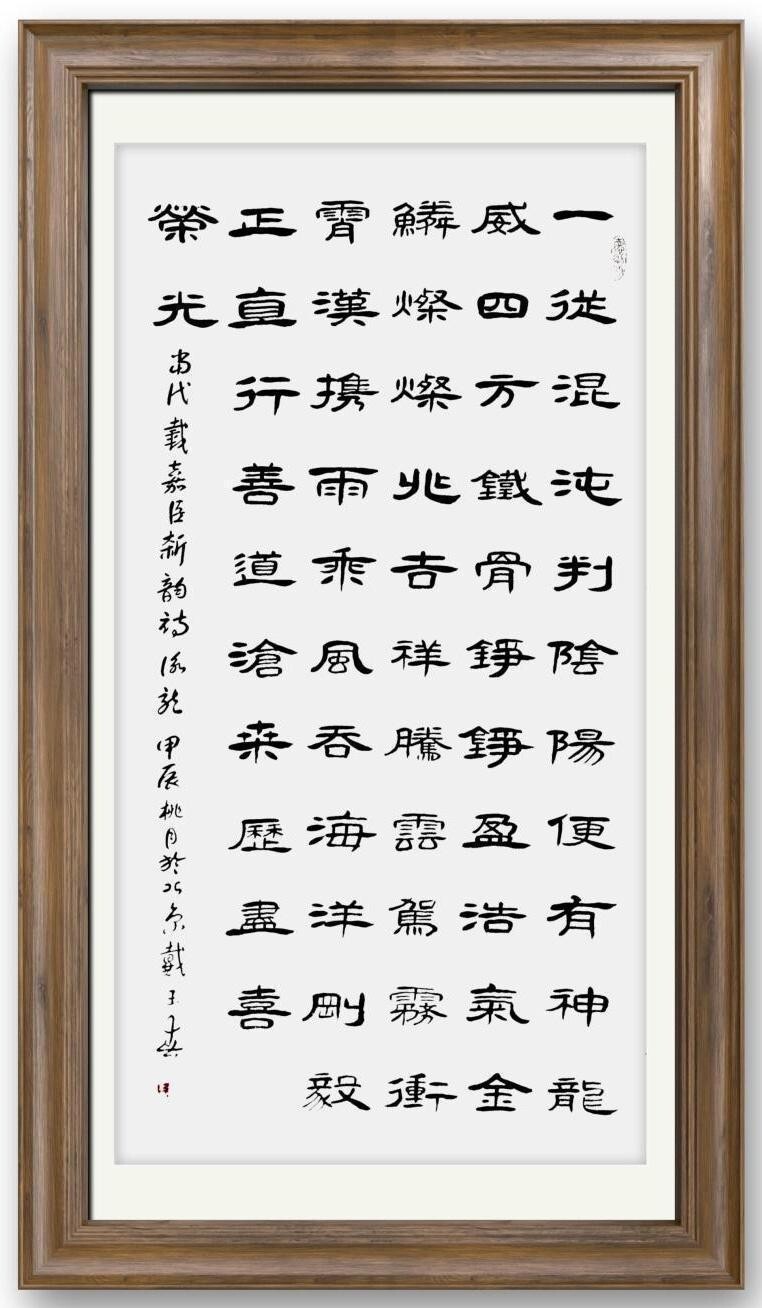 一従混沌判陰陽便有神龍
威四方鐵骨錚錚盈浩氣金
鱗燦燦兆吉祥騰雲駕霧衝
霄漢携雨乘風吞海洋剛毅
正直行善道滄桒歷盡喜
榮光
当代戴嘉臣新韵诗咏龙甲辰桃月於北京戴玉